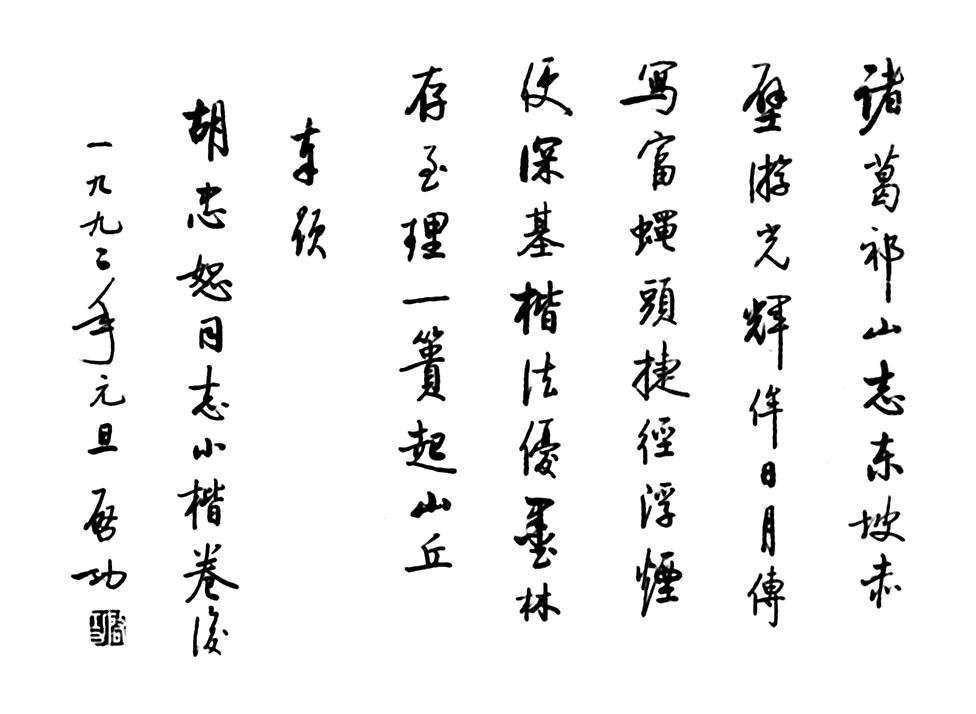 諸葛祁山志东坡赤
壁游光輝侔日月傳
寫富蠅頭捷徑浮煙
便深基楷法優墨林
存至理一簣起山丘
奉题
胡忠恕同志小楷卷後
一九九二年元旦 啓功